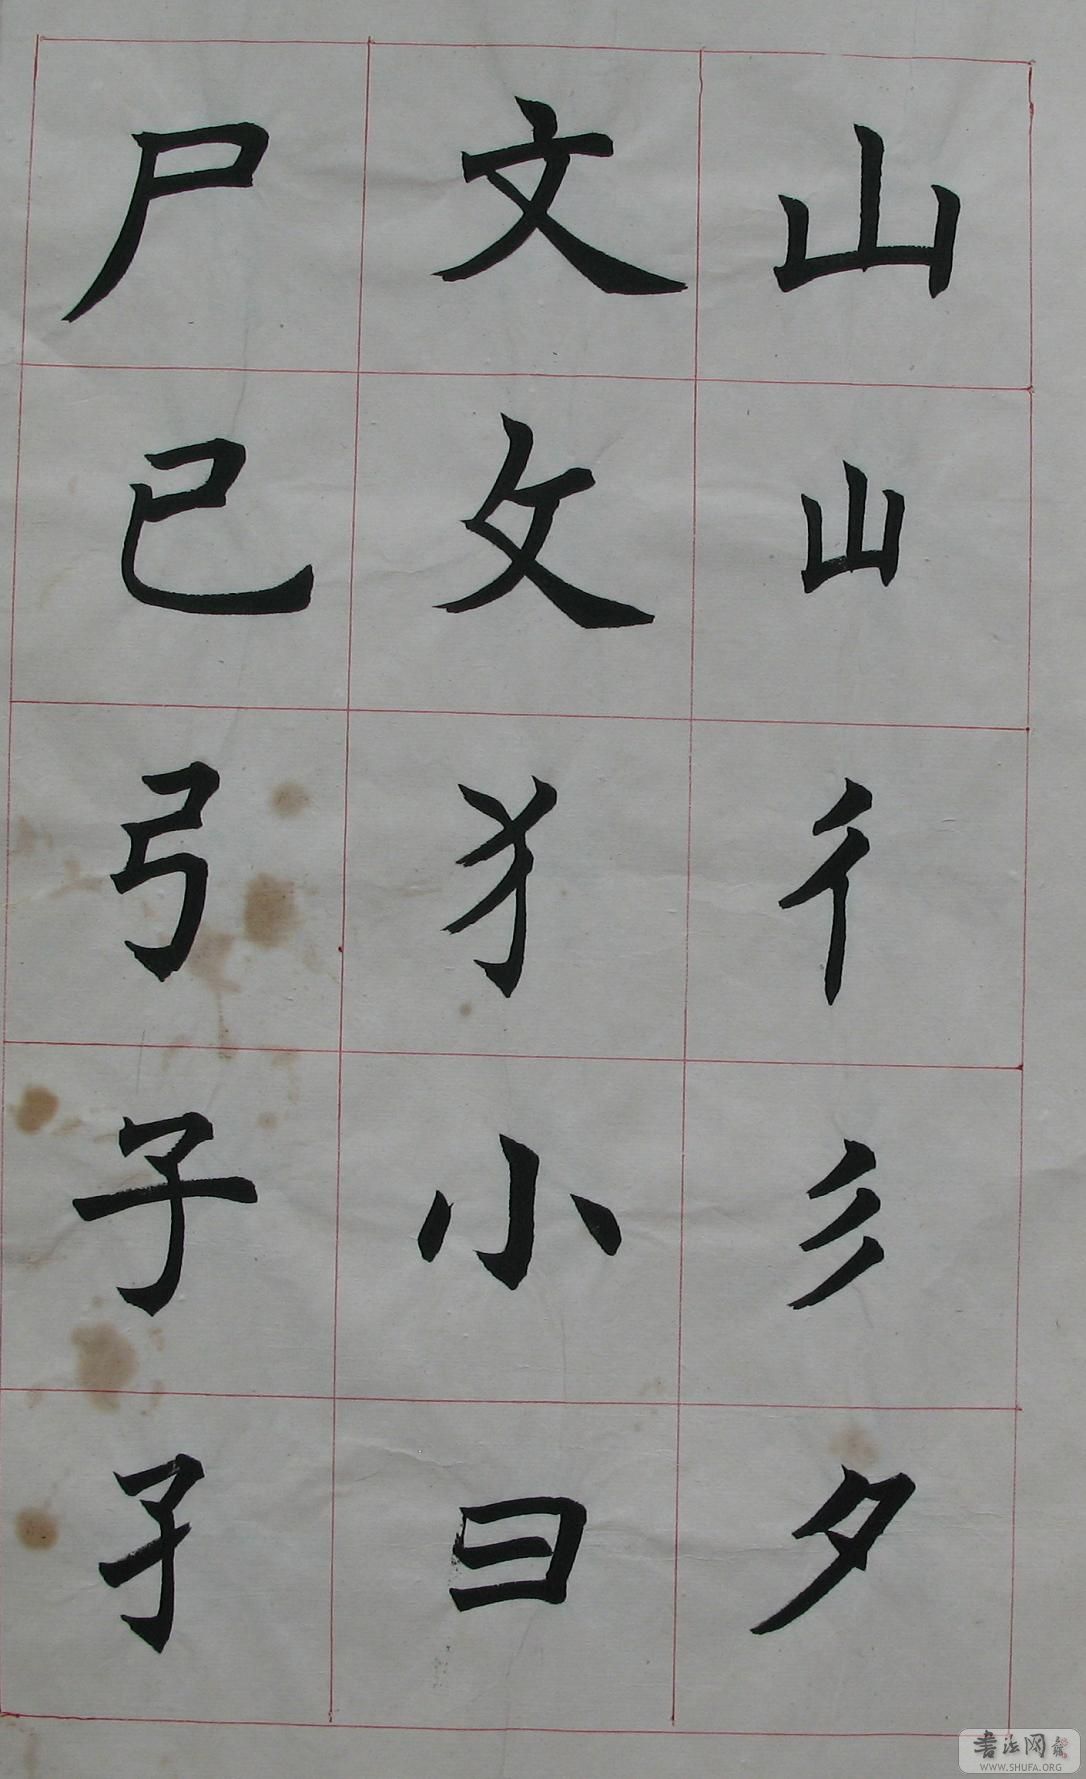 山
山
彳
彡
夕
文
攵
犭
小
彐
尸
已
弓
子
孑
书法网
WWW.SHUFA.ORG